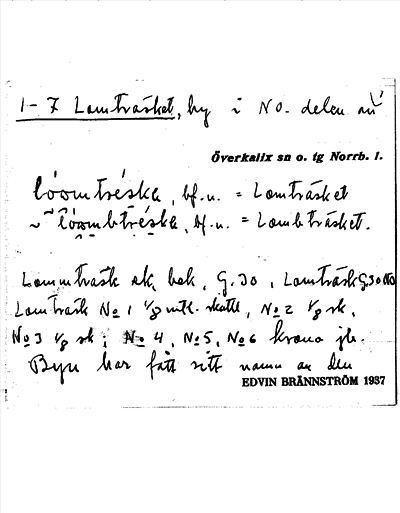 1-7 Lomträsket, by i NO. delen av
Överkalix sn o. tg Norrb. l.
lóomtréska, bf.n. = Lomträsket
~ lóombtréska, bf.n. = Lombträsket.
Lommtrask sk. bok, G.30, Lomträsk G.30 No
Lomträsk No 1 1/8 mtl. skatte, No 2 1/8 sk,
No 3 1/8 sk; No 4, No 5, No 6 krono jb.
Byn har fått sitt namn av den
EDVIN BRÄNNSTRÖM 1937